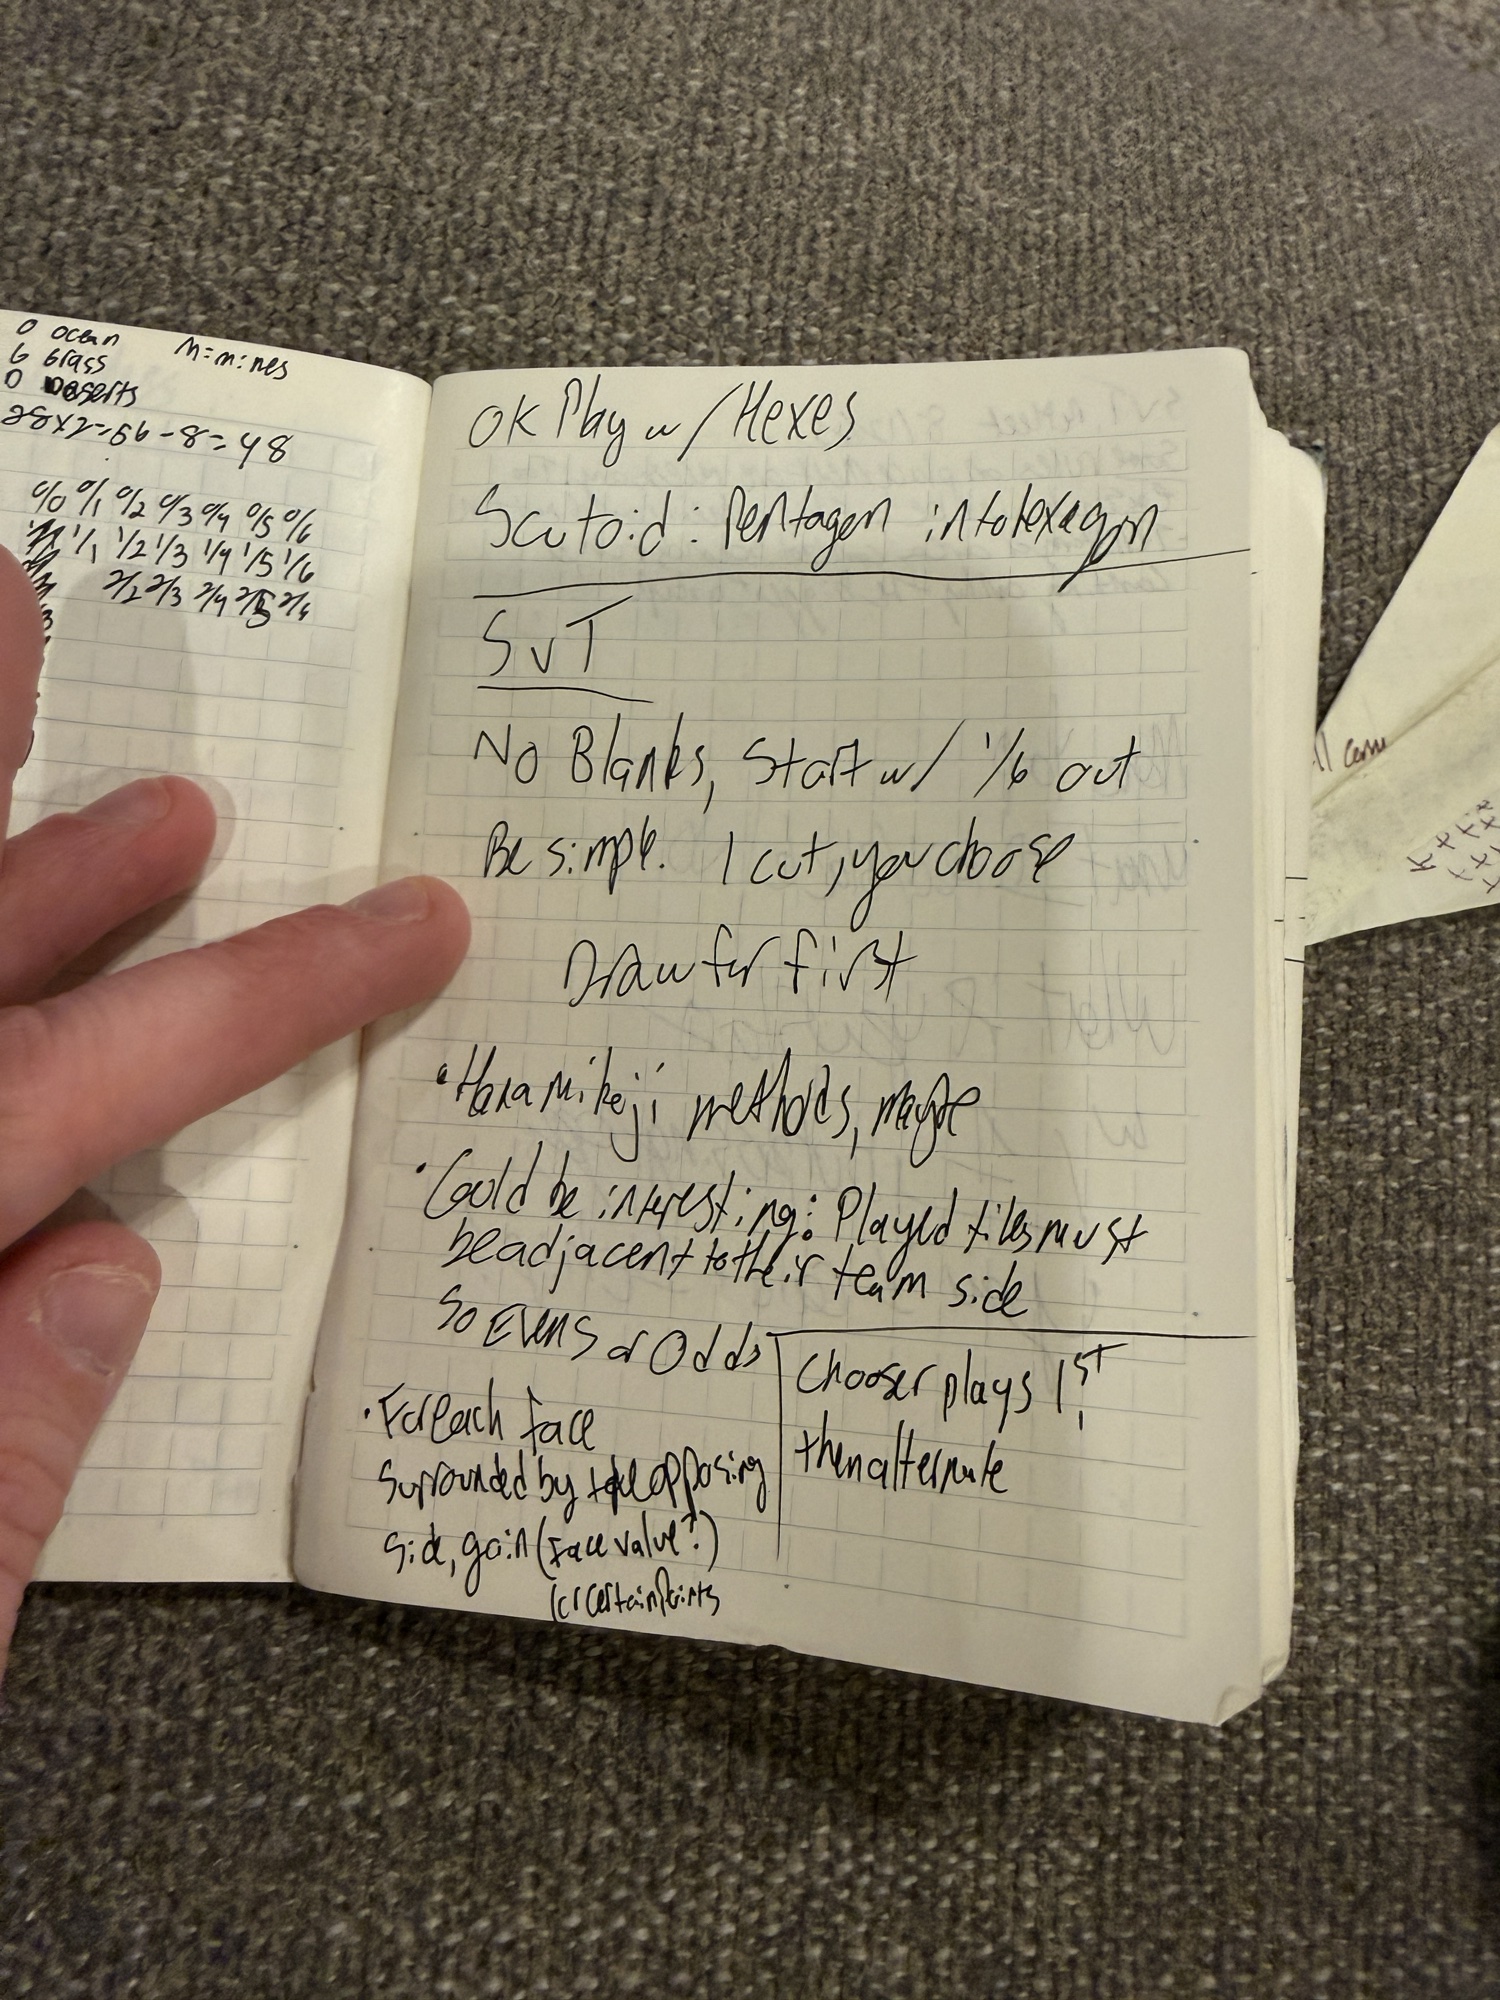 0 ocean
6 Grass
0 Deserts
M=mines
28x2=56-8=48
0/0 0/1 0/2 0/3 0/4 0/5 0/6
1/1 1/2 1/3 1/4 1/5 1/6
2/2 2/3 2/4 2/5 2/6
OK Play w/ Hexes
Scutoid: Pentagon into hexagon
SvT
No Blanks, Start w/ 1/6 out
Be simple. I cut, you choose
Draw for first
• Hanamikoji methods, maybe
• Could be interesting: Played tiles must
be adjacent to their team side
So Evens or Odds
Chooser plays 1ST,
then alternate
• For each face
surrounded by opposing
side, gain (face value?)
(or certain points